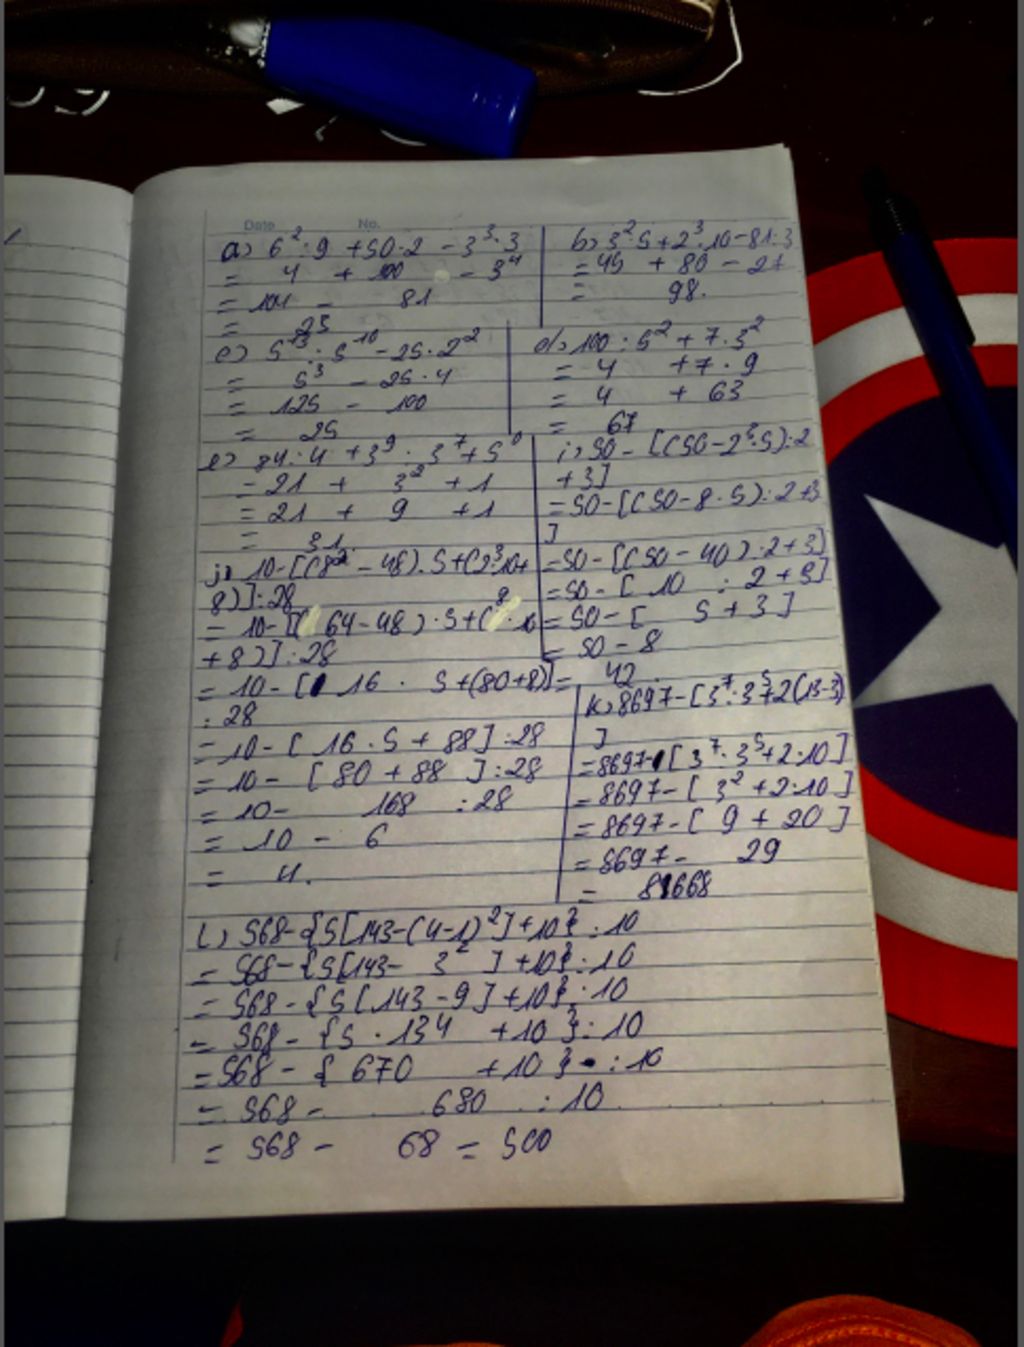 Date No.
a) 6²:9 + 50·2 - 3³·3
= 4 + 100 - 3⁴
= 104 - 81
= 23
b) 3²·5+2³·10-81:3
= 45 + 80 - 27
= 98.
c) 5¹³:5¹⁰ - 25·2²
= 5³ - 25·4
= 125 - 100
= 25
d) 100:5² + 7·3²
= 4 + 7·9
= 4 + 63
= 67
e) 84:4 + 3⁹:3⁷ + 5⁰
= 21 + 3² + 1
= 21 + 9 + 1
= 31.
i) 50 - [(50-2³·5):2
+3]
= 50-[(50-8·5):2+3
]
= 50-[(50-40):2+3]
= 50-[10 : 2+3]
= 50-[ 5+3]
= 50-8
= 42.
j) 10-[(8²-48).5+(2³·10+
8)]:28
= 10-[(64-48)·5+(8·10
+8)]:28
= 10-[16 · 5+(80+8)]
:28
= 10-[16·5+88]:28
= 10-[80+88]:28
= 10- 168 :28
= 10 - 6
= 4.
k) 8697-[3⁷:3⁵+2(13-3)
]
= 8697-[3⁷:3⁵+2·10]
= 8697-[3²+2·10]
= 8697-[9+20]
= 8697- 29
= 8668
l) 568-{5[143-(4-1)²]+10}:10
= 568-{5[143- 3²]+10}:10
= 568-{5[143-9]+10}:10
= 568-{5·134 +10}:10
= 568-{670 +10}:10
= 568- 680 :10
= 568- 68 = 500